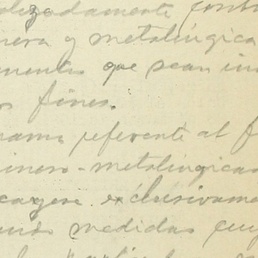 lizadamente contr
nera y metalúrgica
mentos que sean in
s fines.
rama referente al f
inero-metalúrgicas
exclusivame
medidas